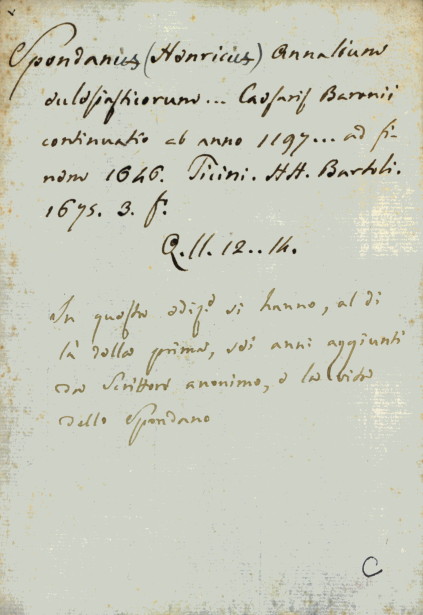 Spondanus (Henricus) Annalium
eclesiasticorum... Caesaris Baronii
continuatio ab anno 1197... ad fi-
nem 1646. Ticini. HH. Bartoli.
1675. 3. f.
Q. II. 12..14.
In questa ediz.e si hanno, al di
là della prima, sei anni aggiunti
da Scrittore anonimo, e la vita
dello Spondano
C